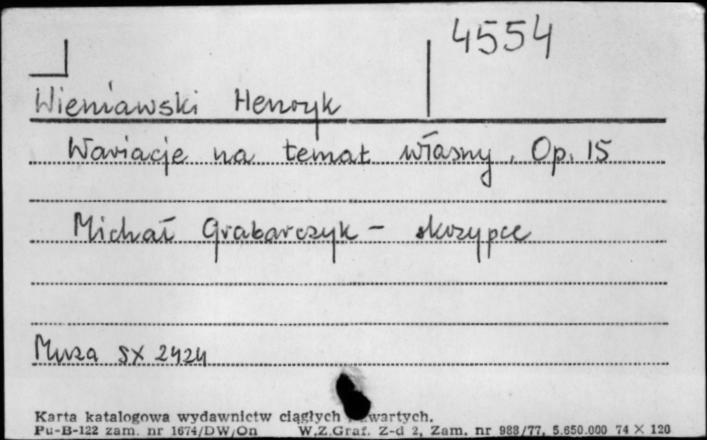 4554
Wieniawski Henryk
Wariacje na temat własny, Op. 15
Michał Grabarczyk - skrzypce
Muza SX 2424
Karta katalogowa wydawnictw ciągłych zwartych.
Pu-B-122 zam. nr 1674/DW/On W.Z.Graf. Z-d 2, Zam. nr 988/77, 5.650.000 74 X 120